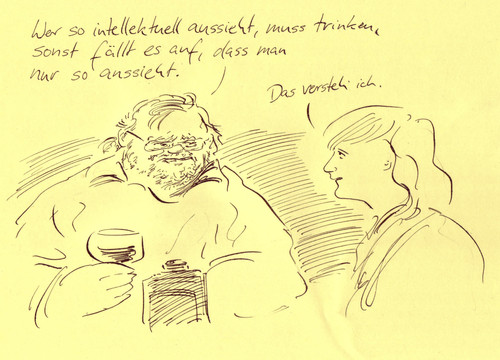 Wer so intellektuell aussieht, muss trinken,
sonst fällt es auf, dass man
nur so aussieht.
Das versteh ich.